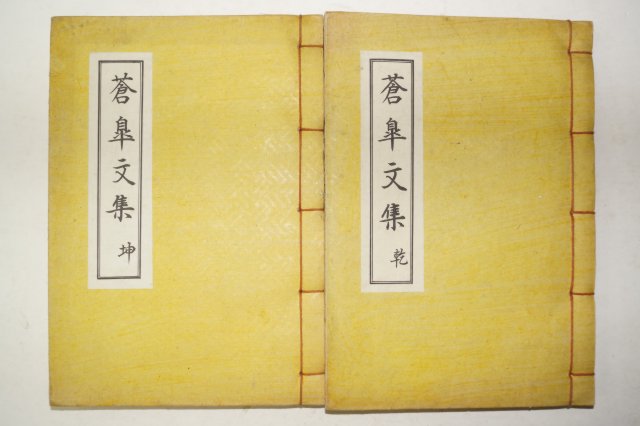 蒼皐文集 乾
蒼皐文集 坤